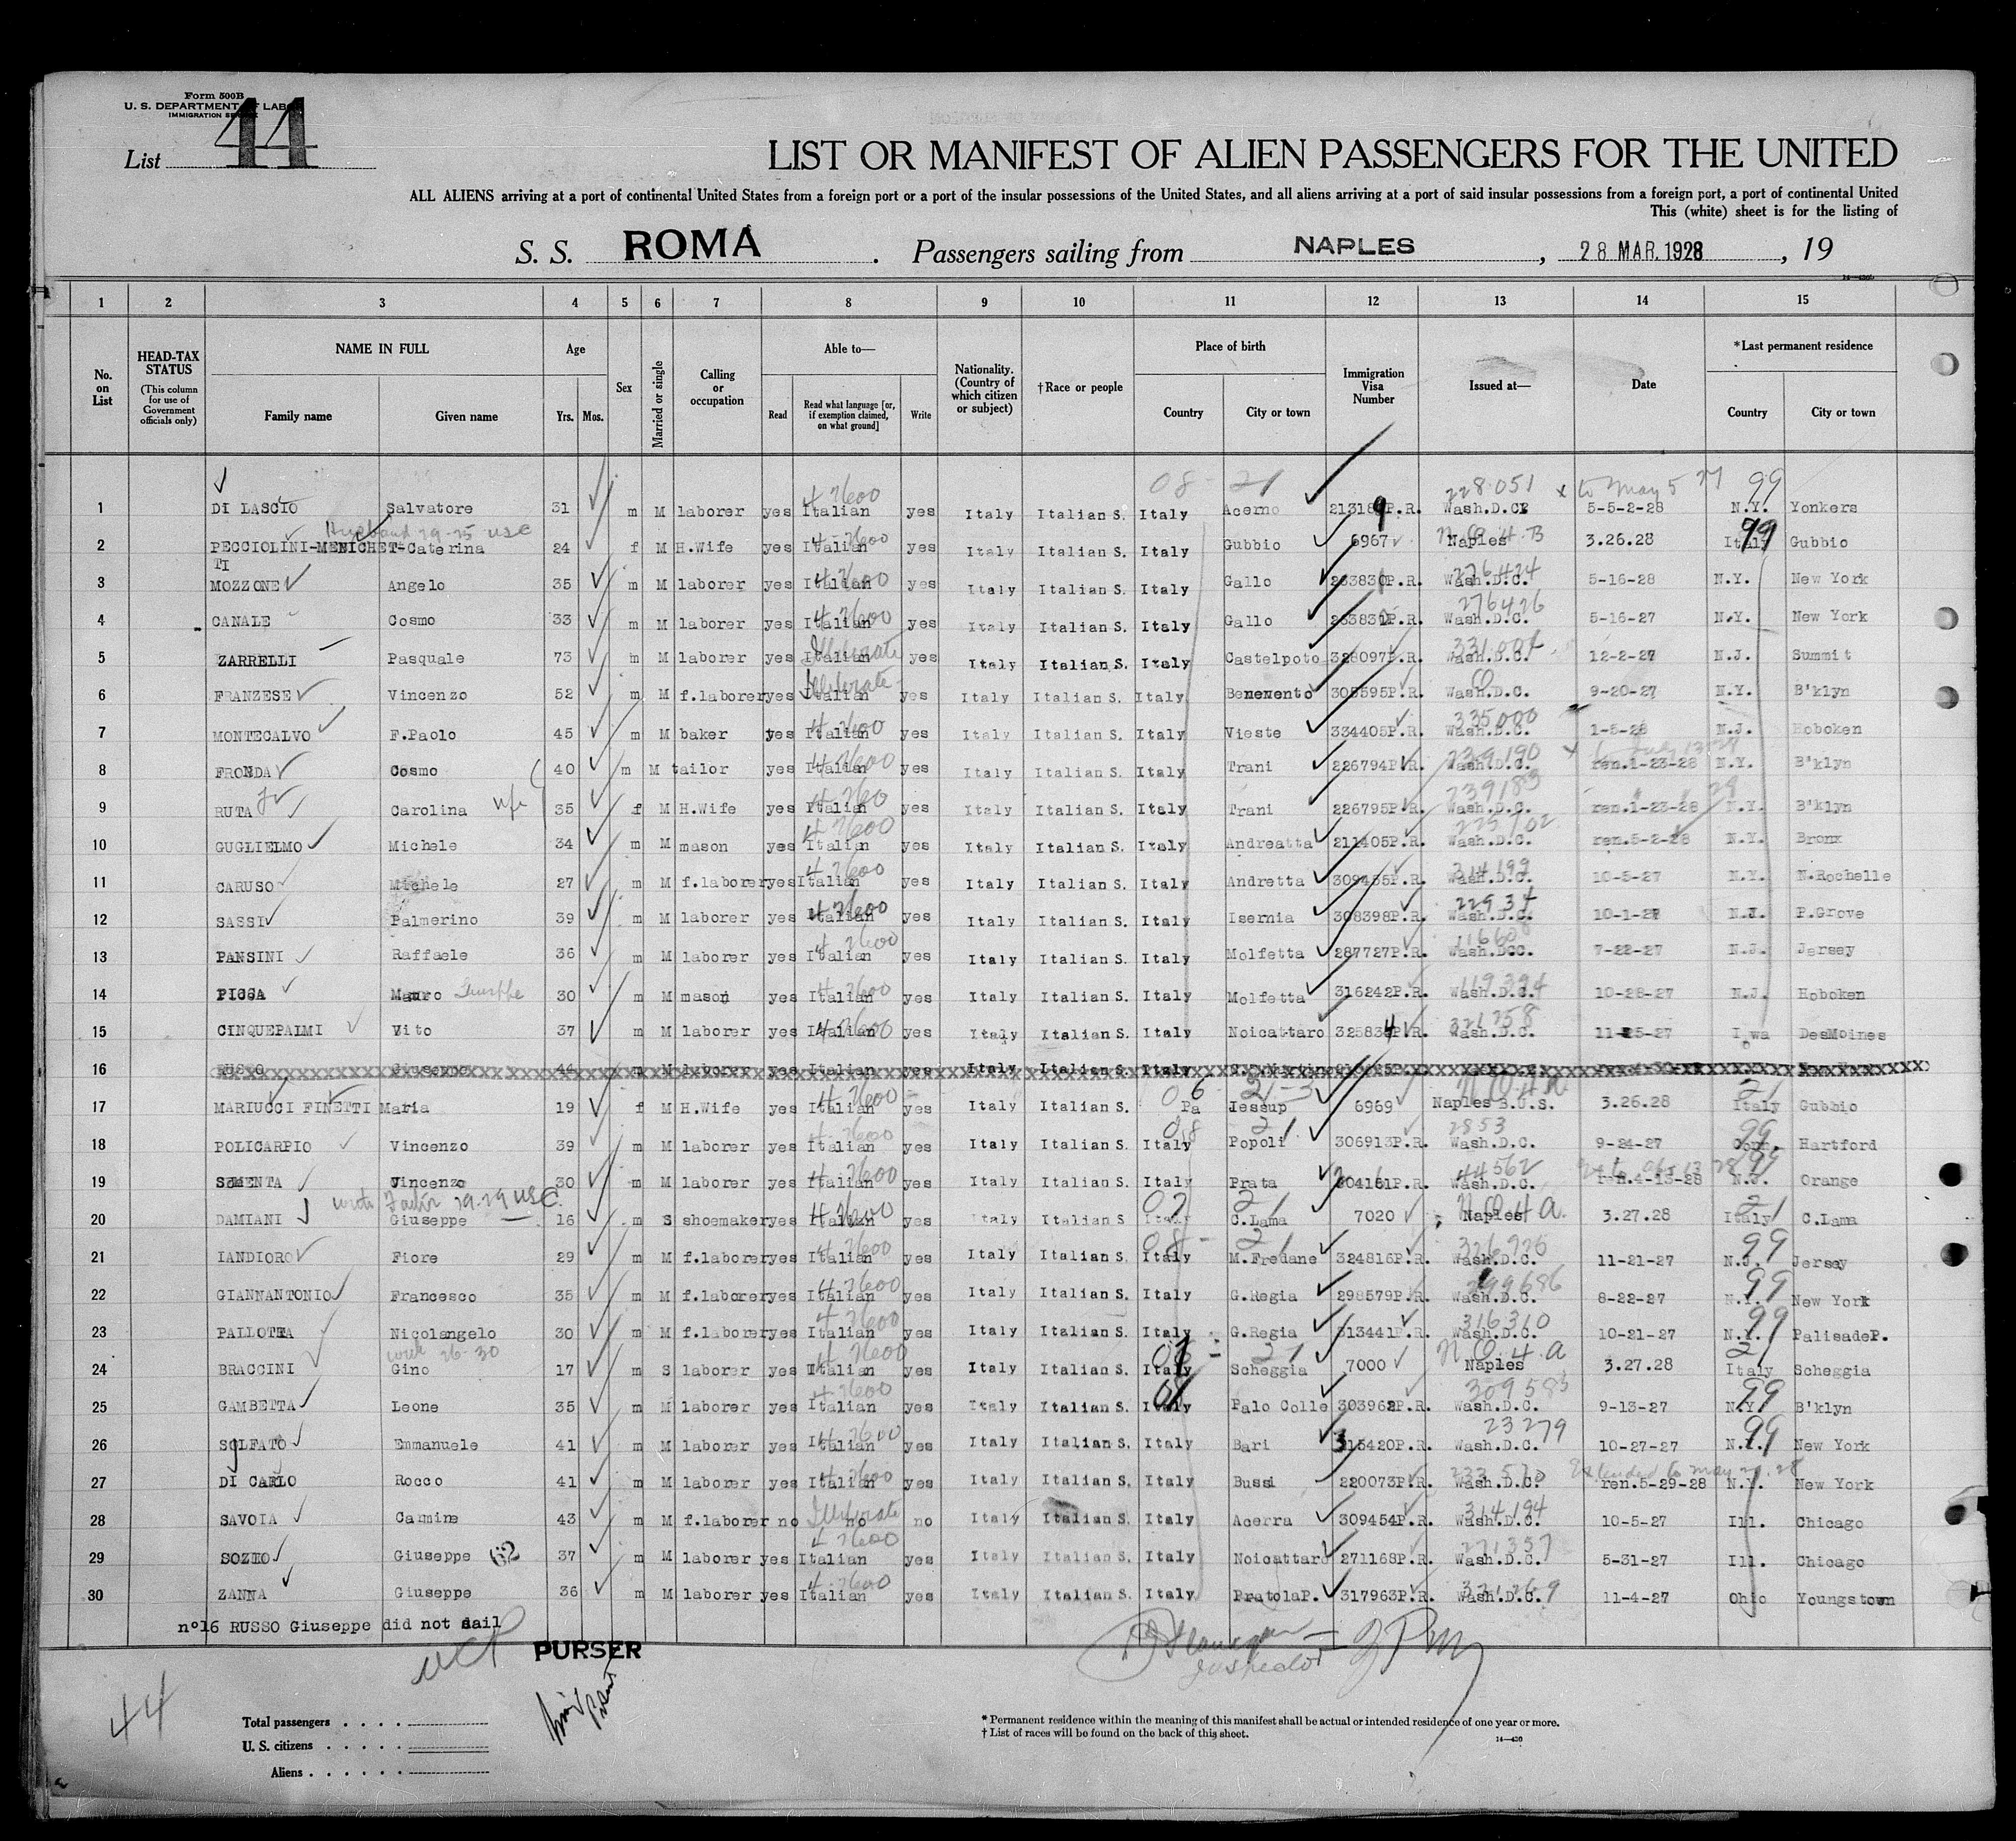 Form 500B
U. S. DEPARTMENT OF LABOR
IMMIGRATION SERVICE
List 44
LIST OR MANIFEST OF ALIEN PASSENGERS FOR THE UNITED
ALL ALIENS arriving at a port of continental United States from a foreign port or a port of the insular possessions of the United States, and all aliens arriving at a port of said insular possessions from a foreign port, a port of continental United
This (white) sheet is for the listing of
S. S. ROMA . Passengers sailing from NAPLES , 28 MAR. 1928 , 19
1 2 3 4 5 6 7 8 9 10 11 12 13 14 15
No. on List HEAD-TAX STATUS (This column for use of Government officials only) NAME IN FULL Family name Given name Age Yrs. Mos. Sex Married or single Calling or occupation Able to— Read Read what language [or, if exemption claimed, on what ground] Write Nationality. (Country of which citizen or subject) †Race or people Place of birth Country City or town Immigration Visa Number Issued at— Date *Last permanent residence Country City or town
08 - 21 228051 x to May 5 99
1 DI LASCIO Salvatore 31 m M laborer yes Italian yes Italy Italian S. Italy Acerno P.R. Wash.D.C. 5-5-2-28 N.Y. Yonkers
Husband 29-25 USC
2 PECCIOLINI-MENICHET-Caterina 24 f M H.Wife yes Italian yes Italy Italian S. Italy Gubbio 6967 Naples 3.26.28 Italy Gubbio
TI
3 MOZZONE Angelo 35 m M laborer yes Italian yes Italy Italian S. Italy Gallo 263830P.R. Wash.D.C. 5-16-28 N.Y. New York
276426
4 CANALE Cosmo 33 m M laborer yes Italian yes Italy Italian S. Italy Gallo P.R. Wash.D.C. 5-16-27 N.Y. New York
5 ZARRELLI Pasquale 73 m M laborer yes Italian yes Italy Italian S. Italy Castelpoto 328097P.R. Wash.D.C. 12-2-27 N.J. Summit
6 FRANZESE Vincenzo 52 m M f.laborer yes Italian yes Italy Italian S. Italy Benevento 305595P.R. Wash.D.C. 9-20-27 N.Y. B'klyn
335000
7 MONTECALVO F.Paolo 45 m M baker yes Italian yes Italy Italian S. Italy Vieste 334405P.R. Wash.D.C. 1-5-28 N.J. Hoboken
8 FRONDA Cosmo 40 m M tailor yes Italian yes Italy Italian S. Italy Trani 226794P.R. Wash.D.C. ren.1-23-28 N.Y. B'klyn
239183
9 RUTA Carolina wife 35 f M H.Wife yes Italian yes Italy Italian S. Italy Trani 226795P.R. Wash.D.C. ren.1-23-28 N.Y. B'klyn
10 GUGLIELMO Michele 34 m M mason yes Italian yes Italy Italian S. Italy Andreatta 211405P.R. Wash.D.C. ren.5-2-28 N.Y. Bronx
11 CARUSO Michele 27 m M f.laborer yes Italian yes Italy Italian S. Italy Andretta 309455P.R. Wash.D.C. 10-5-27 N.Y. N.Rochelle
12 SASSI Palmerino 39 m M laborer yes Italian yes Italy Italian S. Italy Isernia 308398P.R. Wash.D.C. 10-1-27 N.J. P.Grove
13 PANSINI Raffaele 36 m M laborer yes Italian yes Italy Italian S. Italy Molfetta 287727P.R. Wash.D.C. 7-22-27 N.J. Jersey
14 Mauro Giuseppe 30 m M mason yes Italian yes Italy Italian S. Italy Molfetta 316242P.R. Wash.D.C. 10-28-27 N.J. Hoboken
15 CINQUEPALMI Vito 37 m M laborer yes Italian yes Italy Italian S. Italy Noicattaro 325834P.R. Wash.D.C. 11-25-27 Iowa DesMoines
16 RUSSO Giuseppe 44 m M laborer yes Italian yes Italy Italian S. Italy
17 MARIUCCI FINETTI Maria 19 f M H.Wife yes Italian yes Italy Italian S. Pa Jessup 6969 Naples B.U.S. 3.26.28 Italy Gubbio
18 POLICARPIO Vincenzo 39 m M laborer yes Italian yes Italy Italian S. Italy Popoli 306913P.R. Wash.D.C. 9-24-27 Conn. Hartford
44562
19 SEMENTA Vincenzo 30 m M laborer yes Italian yes Italy Italian S. Italy Prata P.R. Wash.D.C. ren.4-13-28 N.J. Orange
Father 29-29 USC
20 DAMIANI Giuseppe 16 m S shoemaker yes Italian yes Italy Italian S Italy C.Lama 7020 Naples 3.27.28 Italy C.Lama
21 IANDIORO Fiore 29 m M f.laborer yes Italian yes Italy Italian S. Italy M.Fredane 324816P.R. Wash.D.C. 11-21-27 N.J. Jersey
22 GIANNANTONIO Francesco 35 m M f.laborer yes Italian yes Italy Italian S. Italy G.Regia 298579P.R. Wash.D.C. 8-22-27 N.Y. New York
316310
23 PALLOTTA Nicolangelo 30 m M f.laborer yes Italian yes Italy Italian S. Italy G.Regia 313441P.R. Wash.D.C. 10-21-27 N.Y. PalisadeP.
24 BRACCINI Gino 17 m S laborer yes Italian yes Italy Italian S. Italy Scheggia 7000 Naples 3.27.28 Italy Scheggia
309583
25 GAMBETTA Leone 35 m M laborer yes Italian yes Italy Italian S. Italy Palo Colle 303962P.R. Wash.D.C. 9-13-27 N.Y. B'klyn
23279
26 SOLFATO Emmanuele 41 m M laborer yes Italian yes Italy Italian S. Italy Bari 315420P.R. Wash.D.C. 10-27-27 N.Y. New York
Extended to May 29.28
27 DI CARLO Rocco 41 m M laborer yes Italian yes Italy Italian S. Italy Bussi 220073P.R. Wash.D.C. ren.5-29-28 N.Y. New York
314194
28 SAVOIA Carmine 43 m M f.laborer no Illiterate no no Italy Italian S. Italy Acerra 309454P.R. Wash.D.C. 10-5-27 Ill. Chicago
271357
29 Giuseppe 62 37 m M laborer yes Italian yes Italy Italian S. Italy Noicattaro 271168P.R. Wash.D.C. 5-31-27 Ill. Chicago
30 ZANNA Giuseppe 36 m M laborer yes Italian yes Italy Italian S. Italy PratolaP. 317963P.R. Wash.D.C. 11-4-27 Ohio Youngstown
n°16 RUSSO Giuseppe did not sail
PURSER
44
Total passengers . . . .
U. S. citizens . . . . .
Aliens . . . . . .
* Permanent residence within the meaning of this manifest shall be actual or intended residence of one year or more.
† List of races will be found on the back of this sheet.
14—430